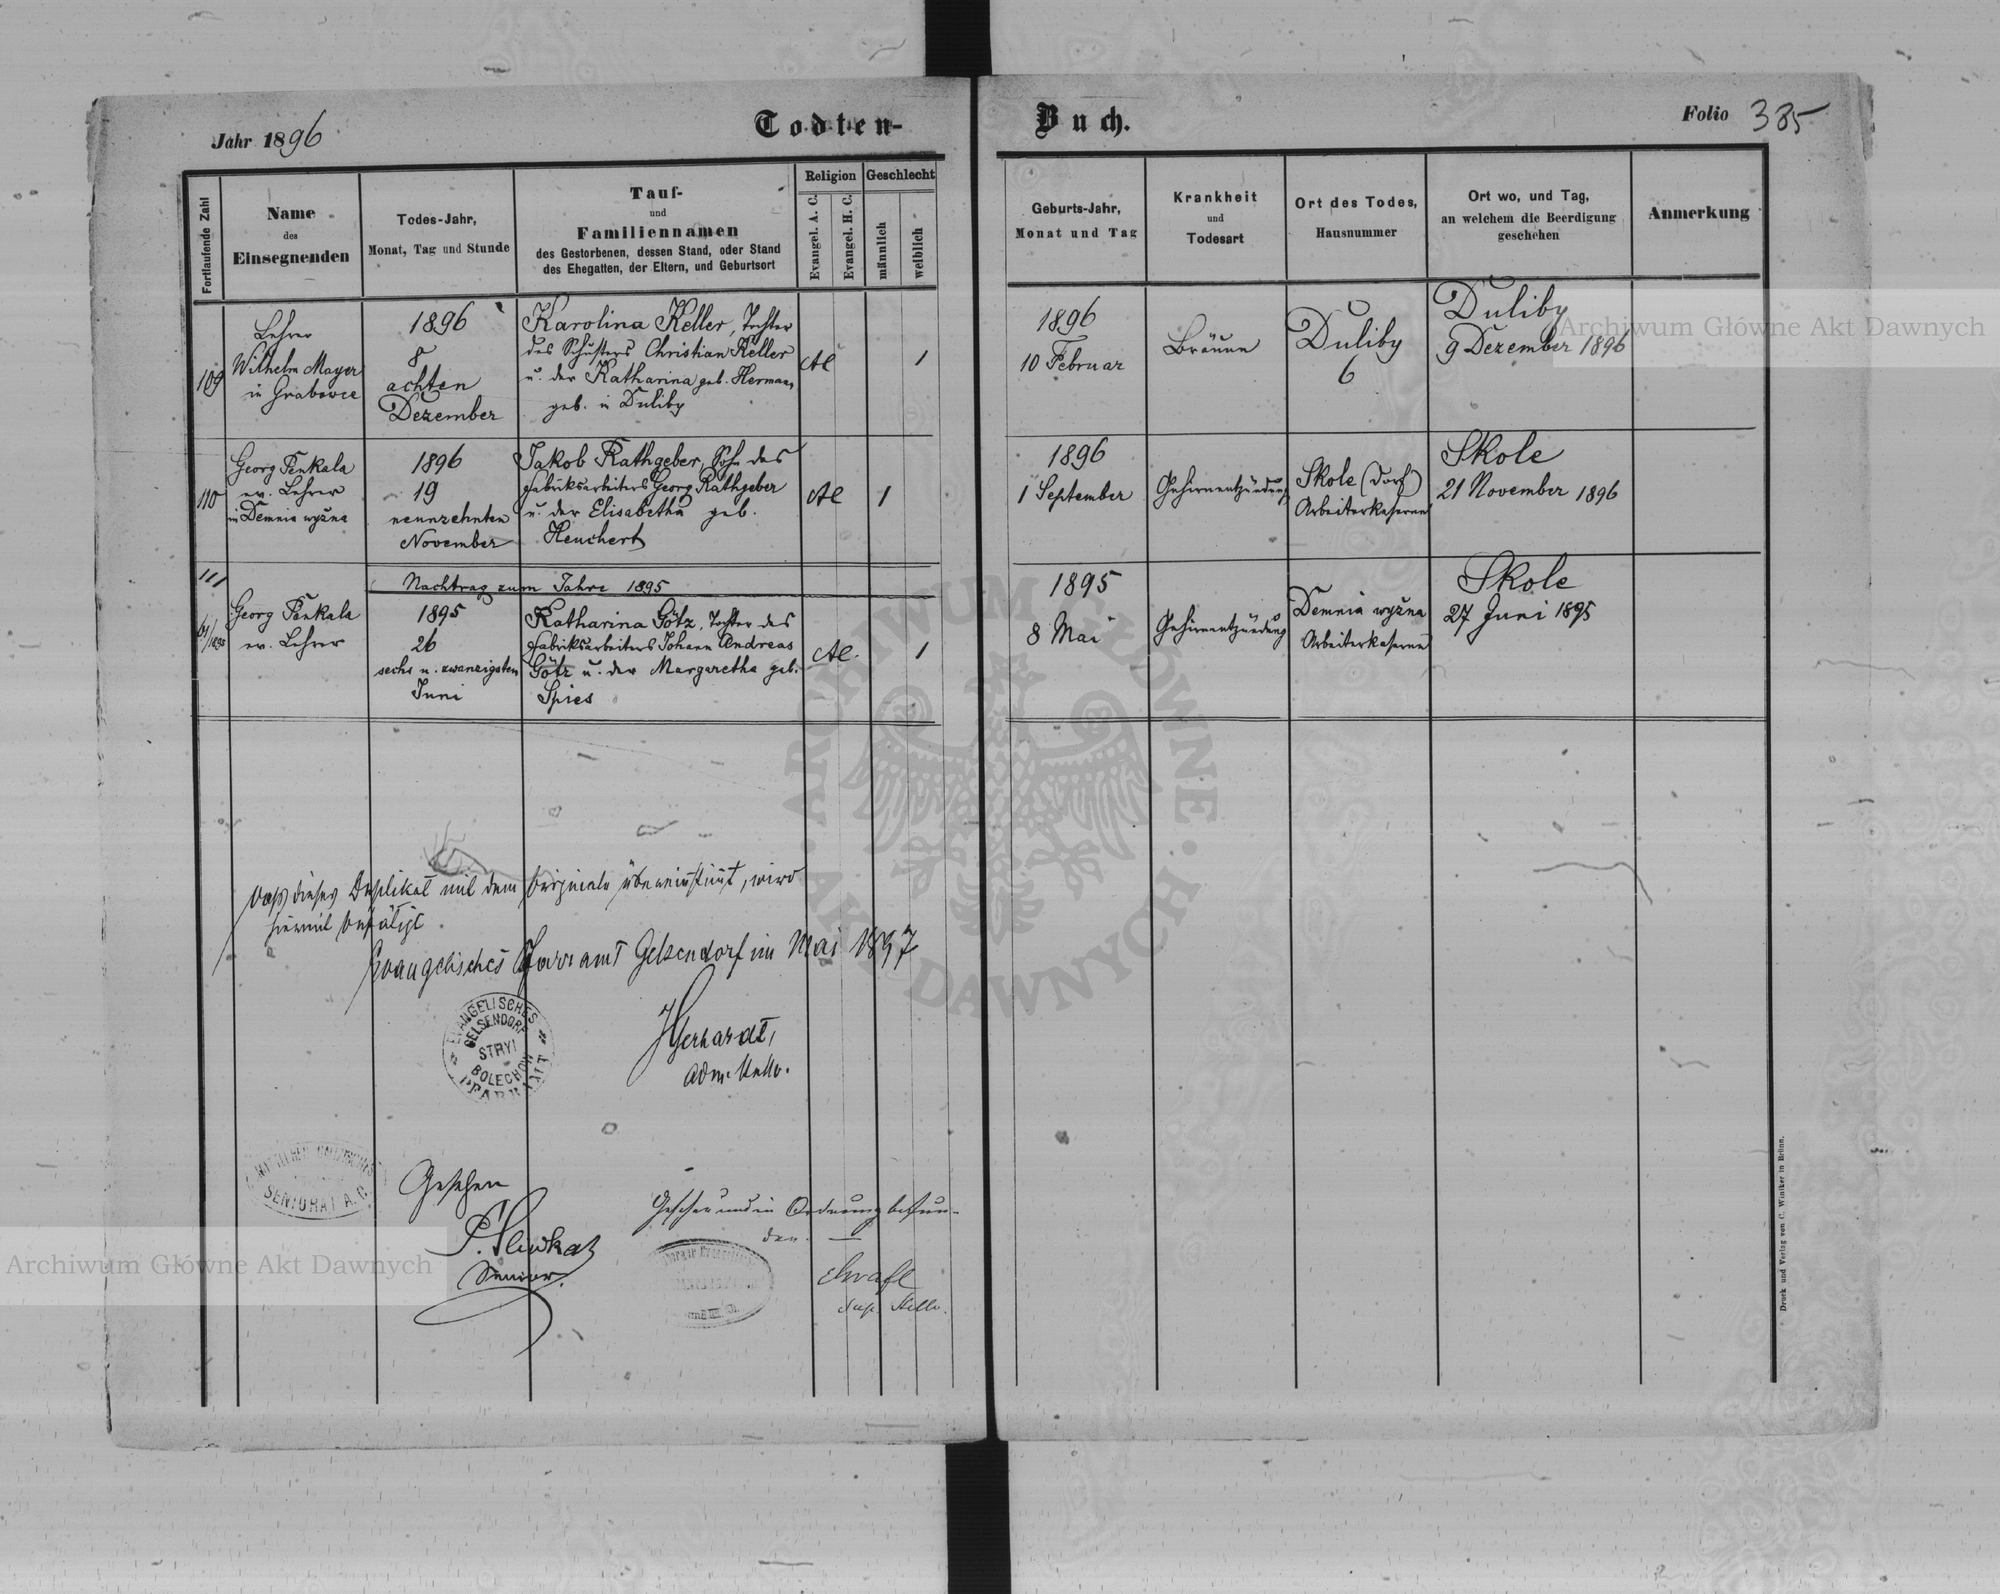 Jahr 1896
Todten-
Buch.
Folio 385
Fortlaufende Zahl
Name
des
Einsegnenden
Todes-Jahr,
Monat, Tag und Stunde
Tauf-
und
Familiennamen
des Gestorbenen, dessen Stand, oder Stand
des Ehegatten, der Eltern, und Geburtsort
Religion
Evangel. A. C.
Evangel. H. C.
Geschlecht
männlich
weiblich
Geburts-Jahr,
Monat und Tag
Krankheit
und
Todesart
Ort des Todes,
Hausnummer
Ort wo, und Tag,
an welchem die Beerdigung
geschehen
Anmerkung
109
Lehrer
Wilhelm Mayer
in Grabovce
1896
8
achten
Dezember
Karolina Keller, Tochter
des Schusters Christian Keller
u. der Katharina geb. Hermann,
geb. in Duliby
AC
1
1896
10 Februar
Bräune
Duliby
6
Duliby
9 Dezember 1896
110
Georg Penkala
ev. Lehrer
in Demnia wyżna
1896
19
neunzehnten
November
Jakob Rathgeber, Sohn des
Fabriksarbeiters Georg Rathgeber
u. der Elisabetha geb.
Heuchert
AC
1
1896
1 September
Gehirnentzündung
Skole (Dorf)
Arbeiterkaserne
Skole
21 November 1896
111
Nachtrag zum Jahre 1895
61/1895
Georg Penkala
ev. Lehrer
1895
26
sechs u. zwanzigsten
Juni
Katharina Götz, Tochter des
Fabriksarbeiters Johann Andreas
Götz u. der Margaretha geb.
Spies
AC.
1
1895
8 Mai
Gehirnentzündung
Demnia wyżna
Arbeiterkaserne
Skole
27 Juni 1895
Dass dieses Duplikat mit dem Originale übereinstimmt, wird
hiermit bestätigt
Evangelisches Pfarramt Gelsendorf im Mai 1897
EVANGELISCHES
GELSENDORF
STRYI
BOLECHOW
PFARRAMT
Gerhardt,
SENIORAT A. C.
Gesehen
Senior.
Gesehen und in Ordnung befun-
den. —
Druck und Verlag von C. Winiker in Brünn.
Archiwum Główne Akt Dawnych
Archiwum Główne Akt Dawnych
ARCHIWUM GŁÓWNE
AKT DAWNYCH